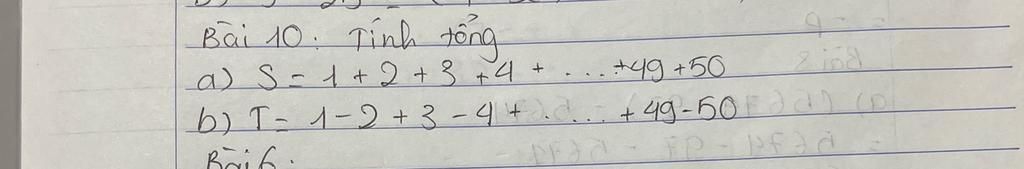 Bài 10: Tính tổng
a) S = 1 + 2 + 3 + 4 + . . . + 49 + 50
b) T = 1 - 2 + 3 - 4 + . . . . + 49 - 50
Bài 6: